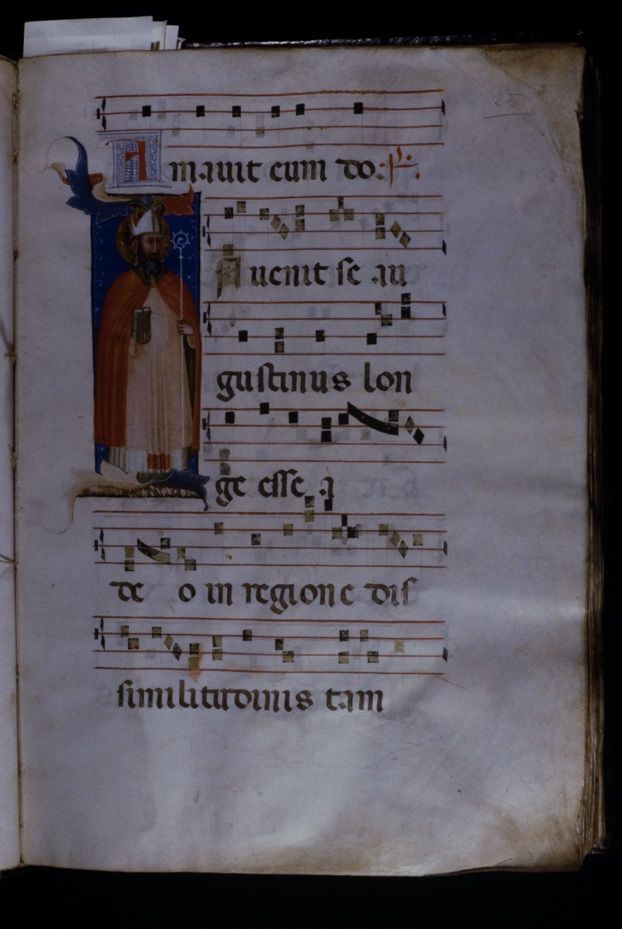 25
Amavit eum do: ℟.
Invenit se au
gustinus lon
ge esse a
de o in regione dis
similitudinis tam